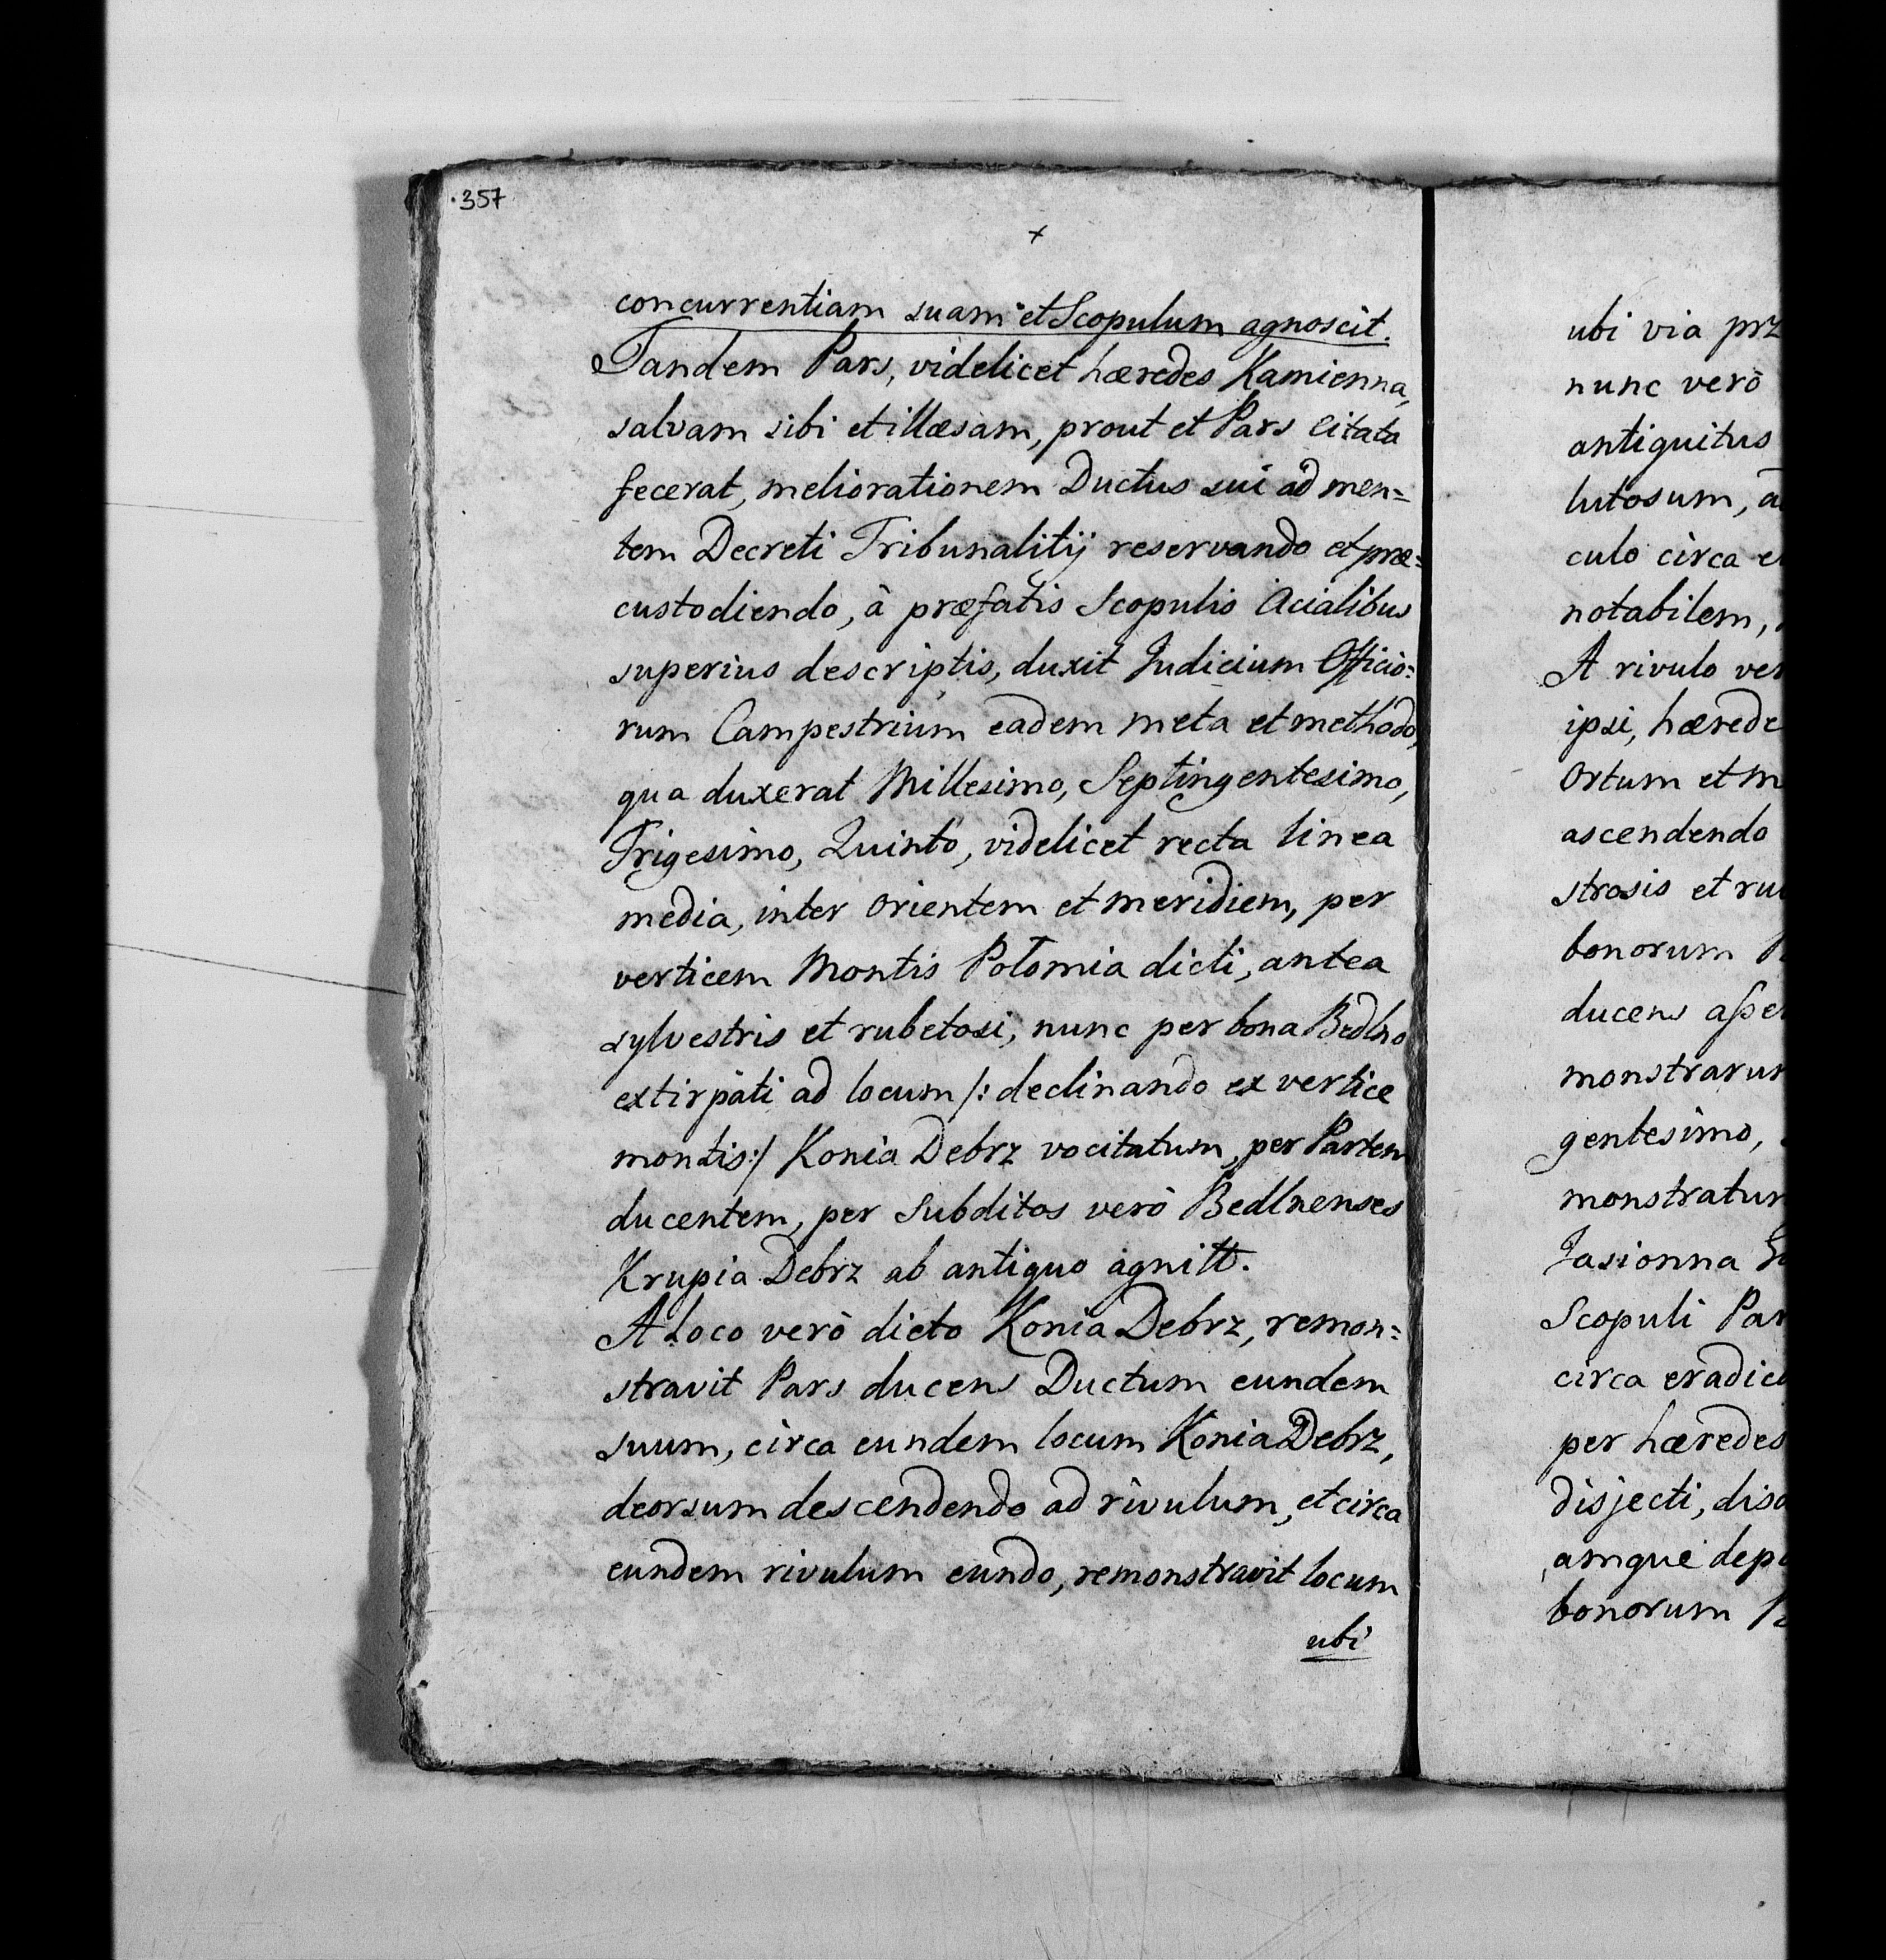 ·357
+
concurrentiam suam et Scopulum agnoscit.
Tandem Pars, videlicet hæredes Kamienna,
salvam sibi et illæsam, prout et Pars Citata
fecerat, meliorationem Ductus sui ad men=
tem Decreti Tribunalitij reservando et præ=
custodiendo, à præfatis Scopulis Acialibus
superius descriptis, duxit Judicium Officio=
rum Campestrium eadem meta et methodo,
qua duxerat Millesimo, Septingentesimo,
Trigesimo, Quinto, videlicet recta linea
media, inter Orientem et meridiem, per
verticem Montis Potomia dicti, antea
sylvestris et rubetosi, nunc per bona Bedlno
extirpati ad locum /: declinando ex vertice
montis:/ Konia Debrz vocitatum, per Partem
ducentem, per Subditos verò Bedlnenses
Krupia Debrz ab antiquo agnitt.
A Loco verò dicto Konia Debrz, remon=
stravit Pars ducens Ductum eundem
suum, circa eundem locum Konia Debrz,
deorsum descendendo ad rivulum, et circa
eundem rivulum eundo, remonstravit locum
ubi
ubi via prz
nunc verò
antiquitus
lutosum, a
culo circa e
notabilem,
A rivulo ver
ipsi, hærede
Ortum et m
ascendendo
strosis et ru
bonorum
ducens asse
monstrarun
gentesimo,
monstratur
Jasionna
Scopuli Par
circa eradic
per hæredes
disjecti, diso
amque dep
bonorum